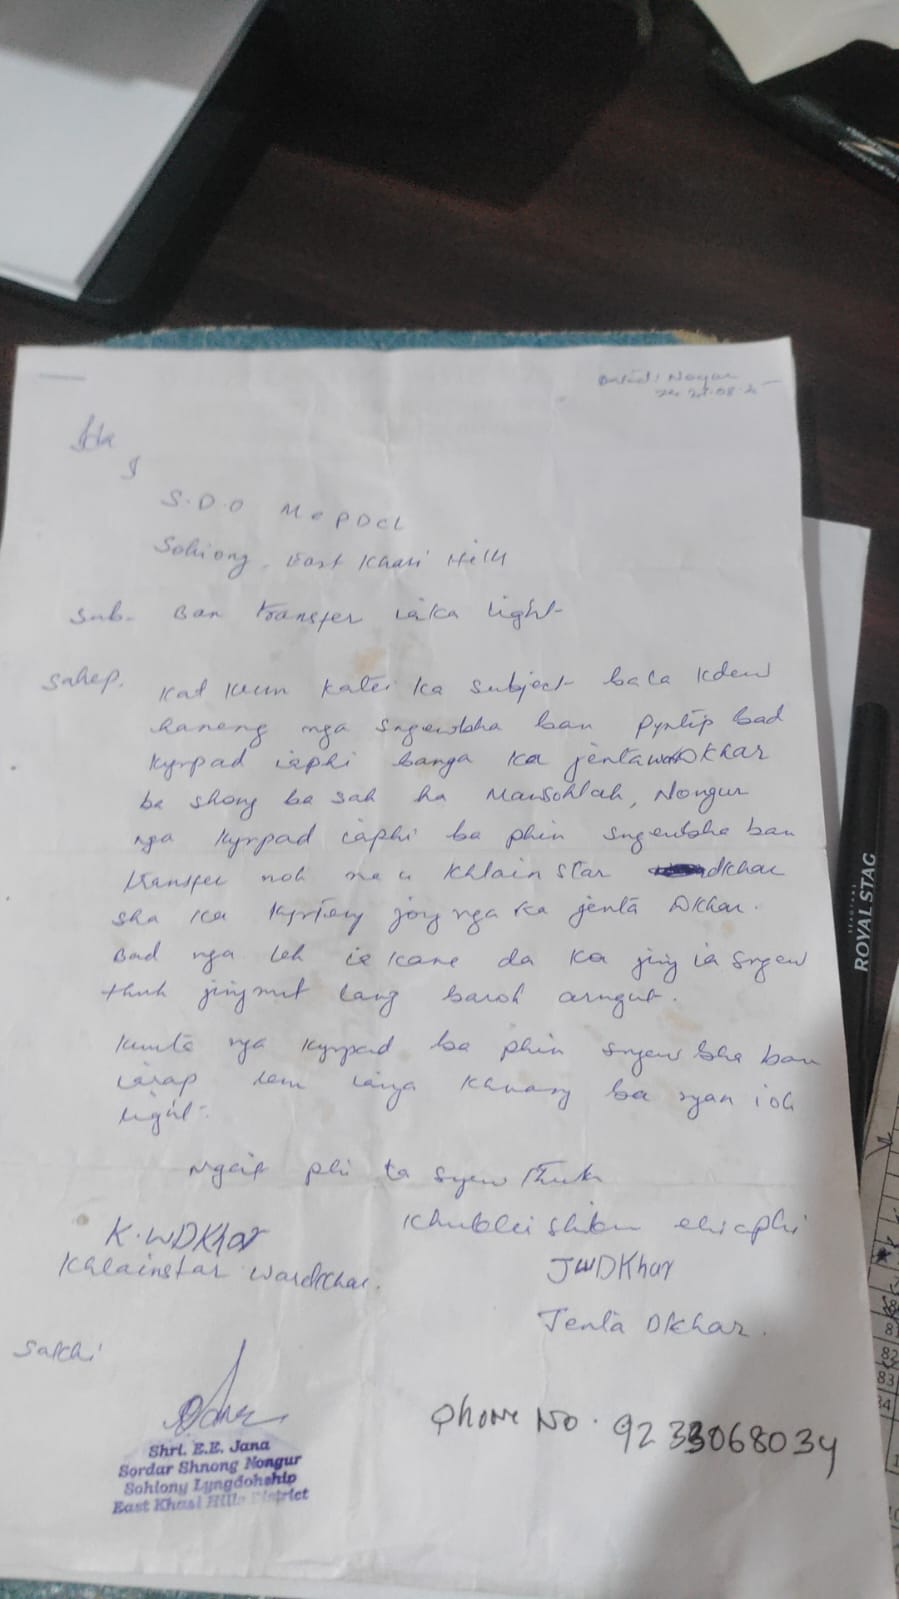 S.D.O MePDCL
Sohiong, East Khasi Hills
Sub- Ban transfer ia ka light
Sahep.
Kat kum katei ka subject bala kdew
haneng nga sngewbha ban pyntip bad
kyrpad iaphi banga ka jenta war Dkhar
ba shong ba sah ha Mawsohlah, Nongur
nga kyrpad iaphi ba phin sngewbha ban
transfer noh na u Khlain Star dkhar
sha ka kyrteng jong nga ka jenta Dkhar.
Bad nga leh ia kane da ka jing ia sngew
thuh jingmut lang baroh arngut.
Kumta nga kyrpad ba phin sngew bha ban
iarap lem ianga khnang ba ngan ioh
light.
Ngaif phi ta sngew thuh
Khublei shibun eh iaphi
K.WDKhar
Khlainstar Wardkhar.
JWDKhar
Jenta Dkhar.
Sakhi
Shri. E.E. Jana
Sordar Shnong Nongur
Sohiong Lyngdohship
East Khasi Hills District
Phone No. 9233068034
ROYAL STAG
82
83